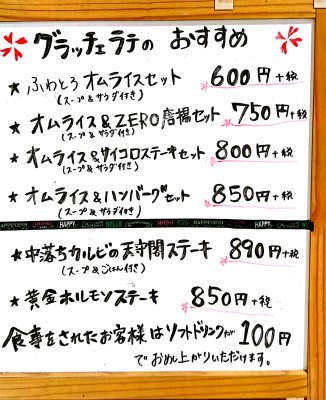 グラッチェラテの おすすめ
★ ふわとろ オムライスセット 600円+税
(スープ&サラダ付き)
★ オムライス&ZERO唐揚セット 750円+税
(スープ&サラダ付き)
★ オムライス&サイコロステーキセット 800円+税
(スープ&サラダ付き)
★ オムライス&ハンバーグセット 850円+税
(スープ&サラダ付き)
HAPPY HELLO HAPPY
★ 中落ちカルビの天守閣ステーキ 890円+税
(スープ&ごはん付き)
★ 黄金ホルモンステーキ 850円+税
食事をされたお客様はソフトドリンクが100円
でおめし上がりいただけます。